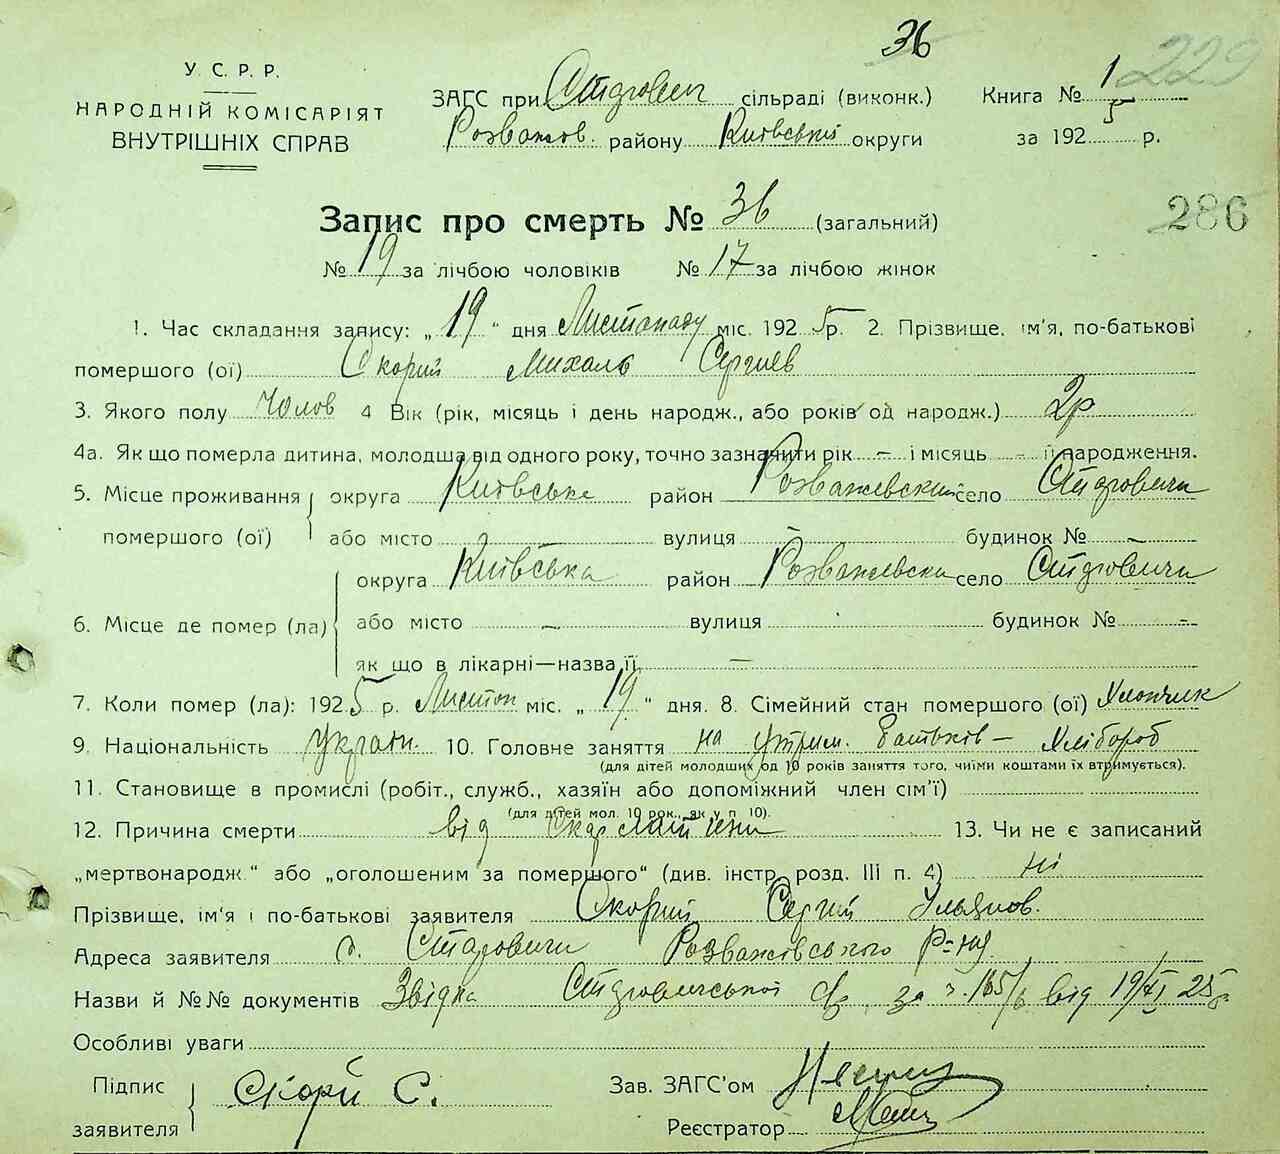 36
229
У. С. Р. Р.
НАРОДНІЙ КОМІСАРІЯТ
ВНУТРІШНІХ СПРАВ
ЗАГС при Старович сільраді (виконк.) Книга № 1
Розважов. району Київській округи за 1925 р.
Запис про смерть № 36 (загальний)
286
№ 19 за лічбою чоловіків № 17 за лічбою жінок
1. Час складання запису: „19“ дня Листопаду міс. 1925 р. 2. Прізвище, ім'я, по-батькові
помершого (ої) Скорий Михаль Сергиев
3. Якого полу Чолов 4 Вік (рік, місяць і день народж., або років од народж.) 2р
4а. Як що померла дитина, молодша від одного року, точно зазначити рік – і місяць – її народження.
5. Місце проживання округа Київське район Розважевский село Старовичи
помершого (ої) або місто – вулиця – будинок № –
округа Київська район Розважевска село Старовичи
6. Місце де помер (ла) або місто – вулиця будинок № –
як що в лікарні—назва її –
7. Коли помер (ла): 1925 р. Листоп міс. „19“ дня. 8. Сімейний стан помершого (ої) Хлопчик
9. Національність Украін. 10. Головне заняття на утрим. батьків – Хлібороб
(для дітей молодших од 10 років заняття того, чиїми коштами їх втримується).
11. Становище в промислі (робіт., служб., хазяїн або допоміжний член сім'ї)
(для дітей мол. 10 рок., як у п 10).
12. Причина смерти від Скарлатини 13. Чи не є записаний
„мертвонародж.“ або „оголошеним за помершого“ (див. інстр. розд. III п. 4) ні
Прізвище, ім'я і по-батькові заявителя Скорий Сергий Ульянов.
Адреса заявителя с. Старовичи Розважівського Р-ну
Назви й №№ документів Звідка Старовичської с/р за ч. 165/6 від 19/XI 25р
Особливі уваги
Підпис Скорй С. Зав. ЗАГС'ом
заявителя Реєстратор